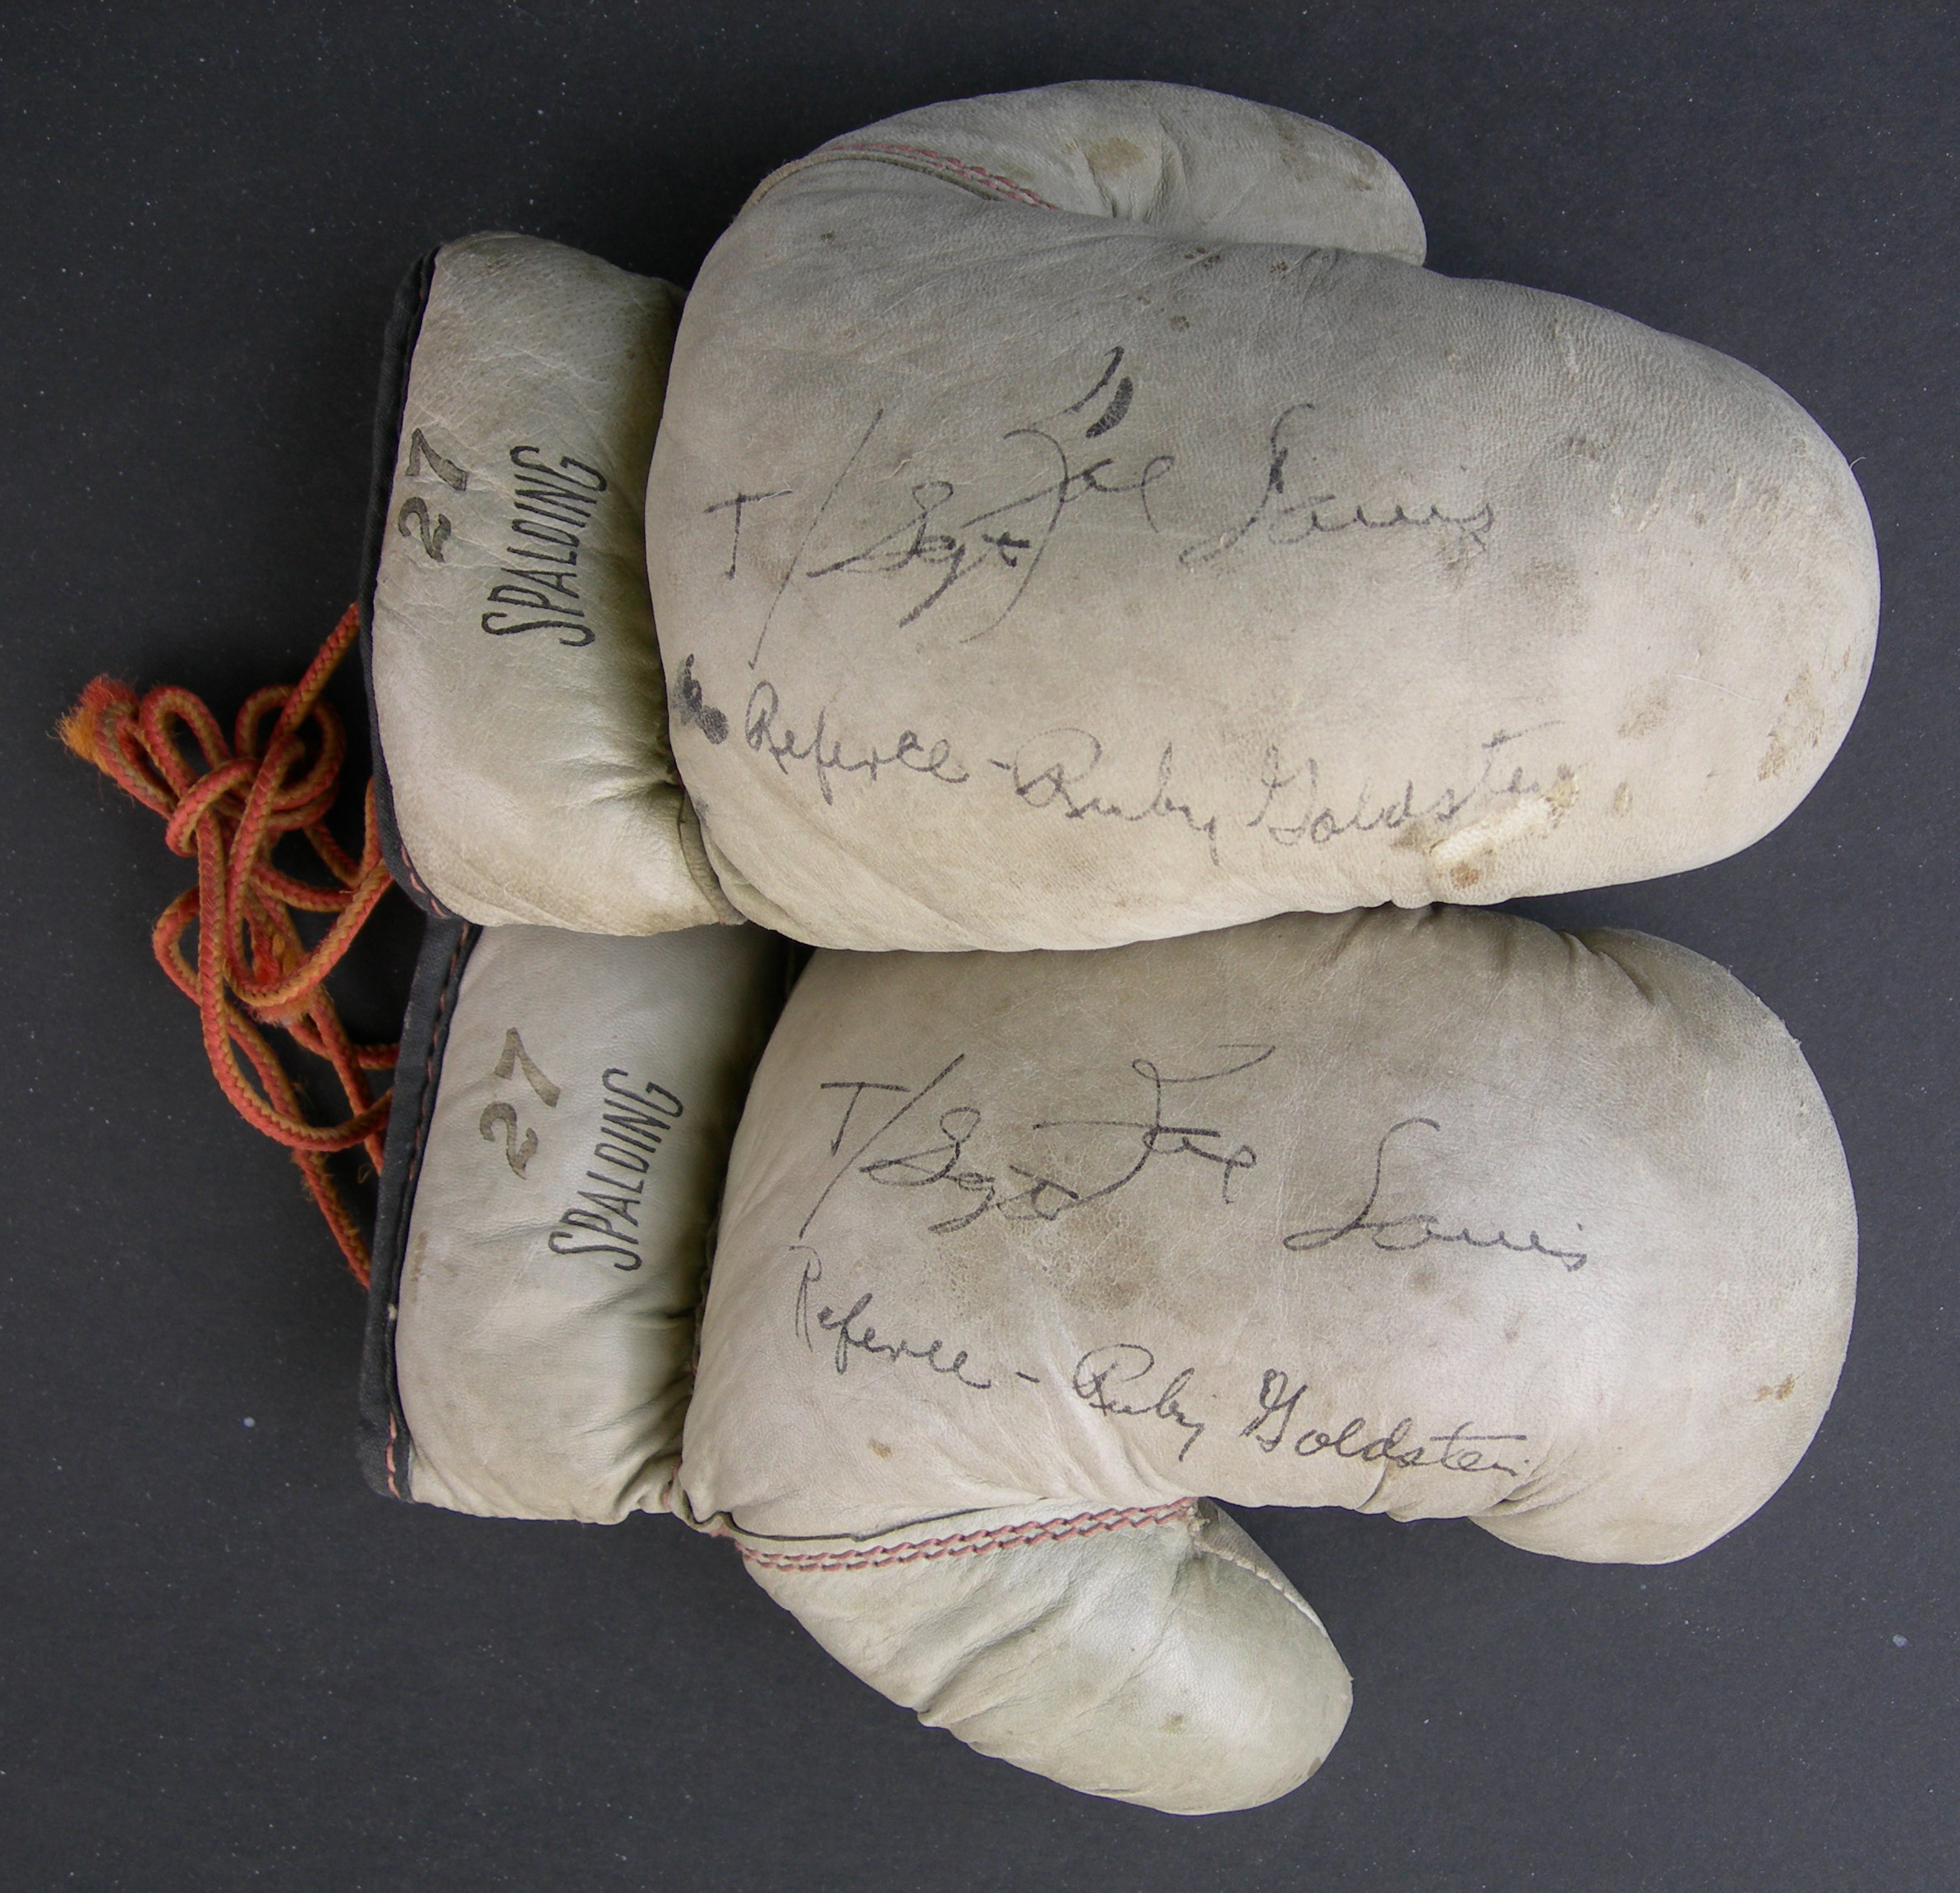 27
SPALDING
T/Sgt Joe Louis
Referee - Ruby Goldstein
27
SPALDING
T/Sgt Joe Louis
Referee - Ruby Goldstein